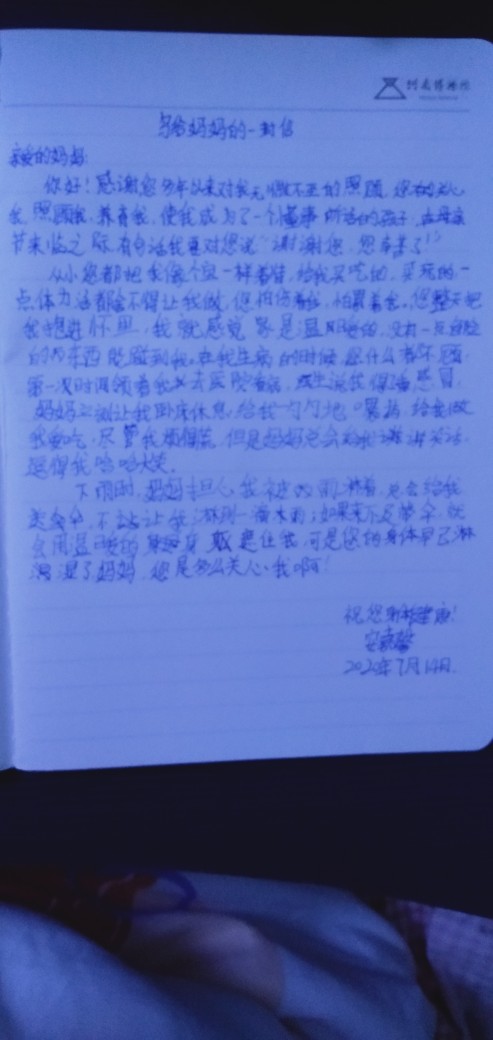 写给妈妈的一封信
亲爱的妈妈:
你好!感谢您多年以来对我无微不至的照顾,您关心
我,照顾我,养育我,使我成为了一个懂事听话的孩子,在母亲
节来临之际,有句话我要对您说“谢谢您,您辛苦了”
从小您都把我像个宝一样看管,给我买吃的,买玩的一
点体力活都舍不得让我做,您怕伤着我,怕累着我,您整天把
我抱进怀里,我就感觉家是温暖的,没有一点
的东西能碰到我,在我生病的时候您什么都不顾,
第一次时间领着我去医院看病,医生说我得了感冒,
妈妈立刻让我卧床休息,给我一勺勺地喂药,给我做
我爱吃,尽管我很难受,但是妈妈总会给我讲笑话,
逗得我哈哈大笑.
下雨时,妈妈担心我被雨淋着,总会给我
送伞,不让我淋到一滴水的;如果来不及带伞,就
会用温暖的身躯裹住我,可是您的身体早已淋
湿了妈妈,您是多么关心我啊!
祝您身体健康!
2020年7月14日.